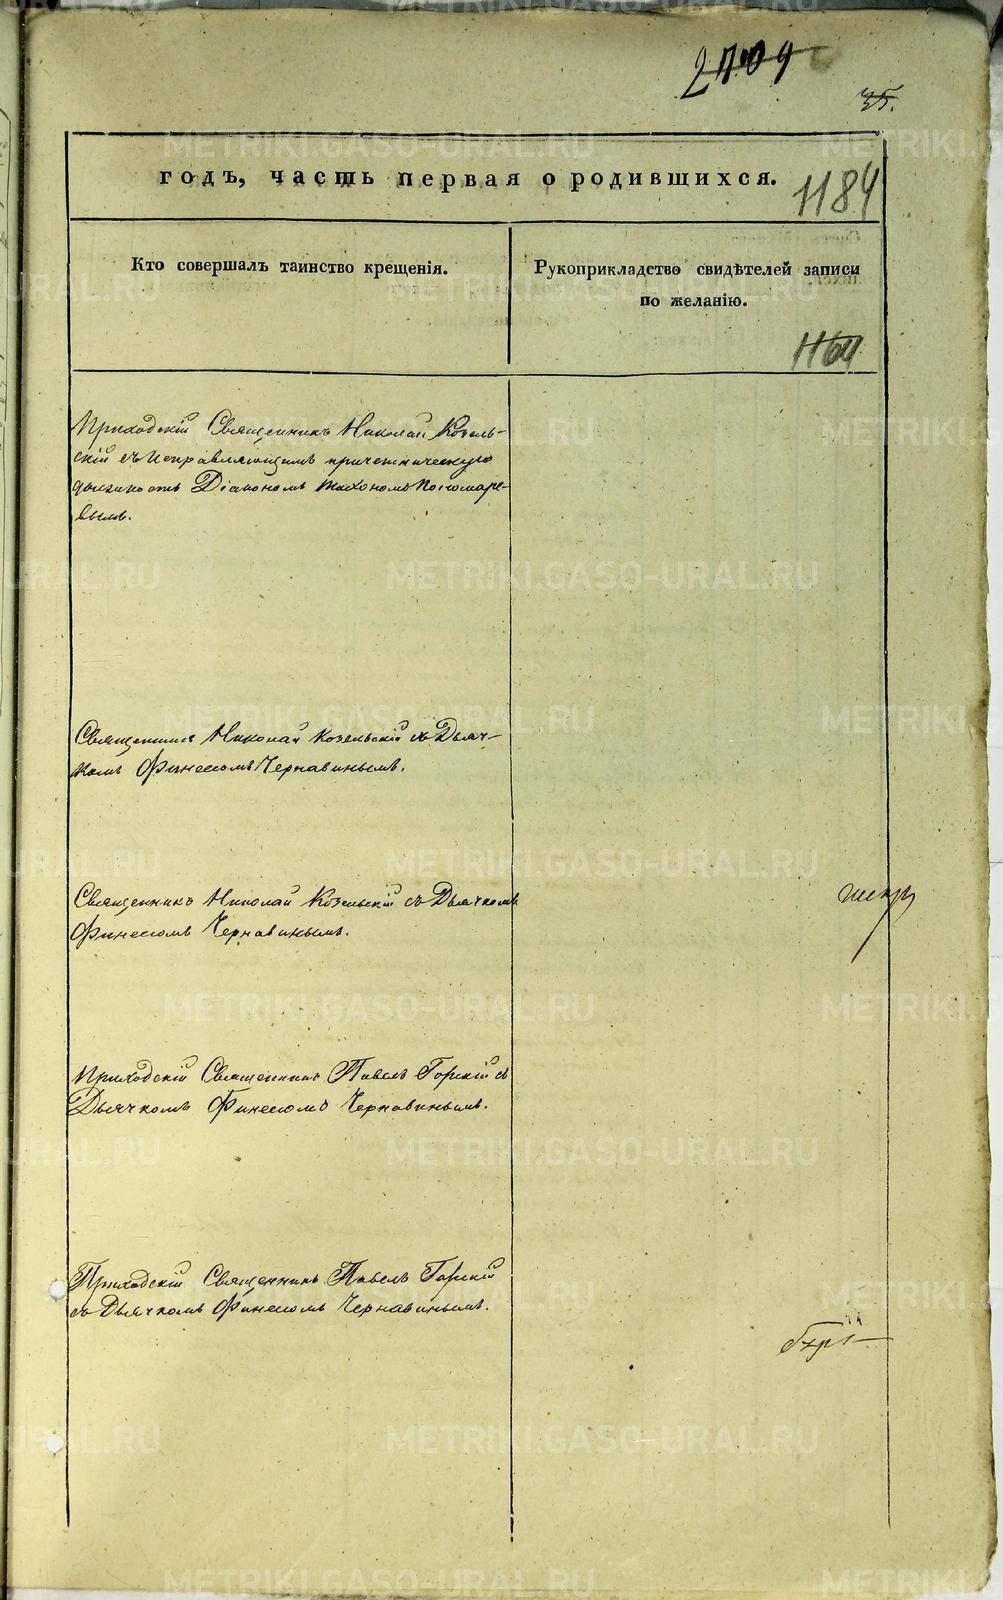 35.
годъ, часть первая о родившихся.
1184
Кто совершалъ таинство крещенія.
Рукоприкладство свидѣтелей записи
по желанію.
1164
Приходскій Священникъ Николай Козель-
скій съ исправляющимъ причетническую
должность Діакономъ Тихономъ Пономаре-
вымъ.
Священникъ Николай Козельскій съ Дьяч-
комъ Финеесомъ Чернавинымъ.
Священникъ Николай Козельскій съ Дьячкомъ
Финеесомъ Чернавинымъ.
Приходскій Священникъ Павелъ Горскій съ
Дьячкомъ Финеесомъ Чернавинымъ.
Приходскій Священникъ Павелъ Горскій
съ Дьячкомъ Финеесомъ Чернавинымъ.
METRIKI.GASO-URAL.RU